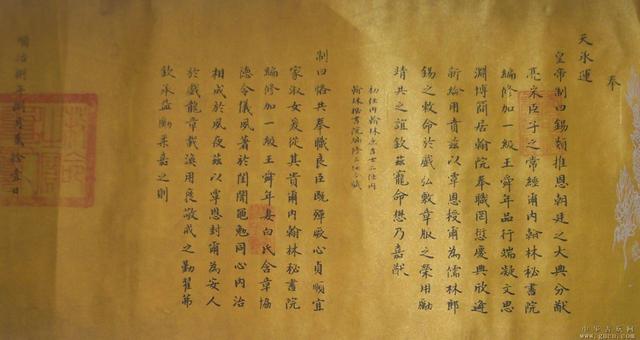 奉
天承運
皇帝制曰錫類推恩朝廷之大典分猷
亮采臣子之常經爾內翰林秘書院
編修加一級王舜年品行端凝文思
淵博簡居翰院奉職罔愆慶典欣逢
新綸用賁茲以覃恩授爾為儒林郎
錫之敕命於戲弘敷章服之榮用勵
靖共之誼欽茲寵命懋乃嘉猷
初任內翰林庶吉士二任內
翰林秘書院編修
制曰恪共奉職良臣既殫厥心貞順宜
家淑女爰從其貴爾內翰林秘書院
編修加一級王舜年妻白氏含章協
德令儀夙著於閨闈黽勉同心內治
相成於夙夜茲以覃恩封爾為安人
於戲龍章載渙用褒敬戒之勤翟茀
欽承益勵柔嘉之則
順治捌年捌月貳拾壹日
中华古玩网
www.gucn.com